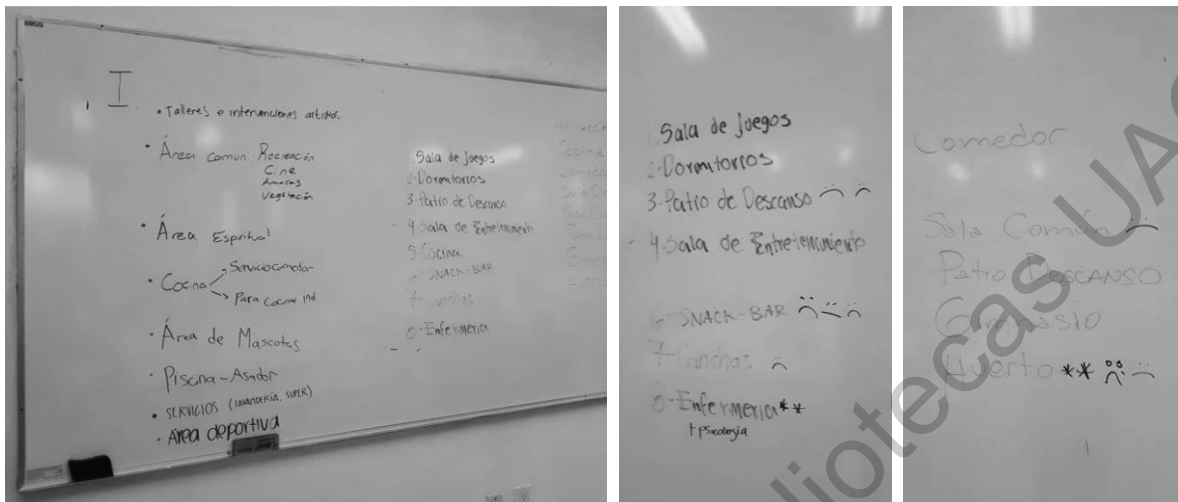 I
• Talleres e intervenciones artísticas
• Área común. Recreación
Cine
Amacas
Vegetación
• Área Espiritual
• Cocina
Servicio comedor
Para cocinar ind.
• Área de Mascotas
• Piscina-Asador
• SERVICIOS (LAVANDERÍA, SUPER)
• Área deportiva
Sala de Juegos
2-Dormitorios
3-Patio de Descanso
4-Sala de Entretenimiento
5-Cocina
6-SNACK-BAR
7-Canchas
8-Enfermeria
Cocina
Comedor
Sala de Juegos
2-Dormitorios
3-Patio de Descanso
4-Sala de Entretenimiento
6-SNACK-BAR
7-Canchas
8-Enfermeria**
+ psicología
Comedor
Sala Común
Patio DESCANSO
Gimnasio
Huerto **